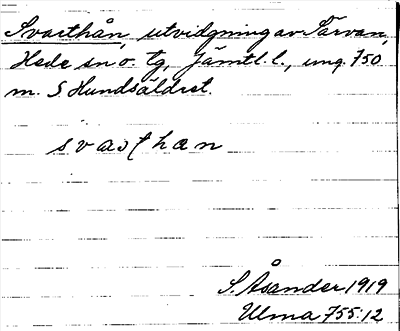 Svarthån, utvidgning av Tärvan,
Hede sn o. tg, Jämtl. l., ung. 750
m. S Hundsäldret.
svarthan
S. Åsander 1919
Ulma 755:12